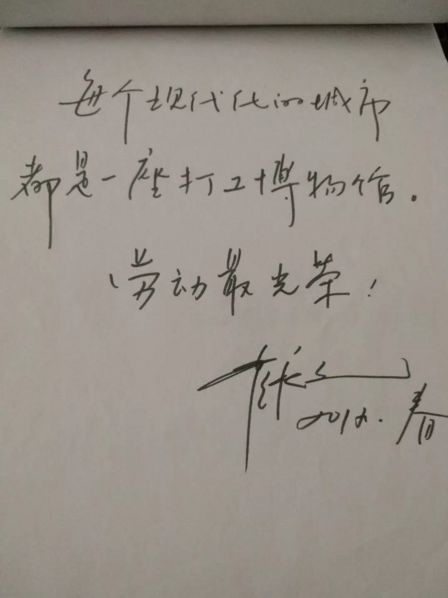 每个现代化的城市
都是一座打工博物馆.
劳动最光荣!
春